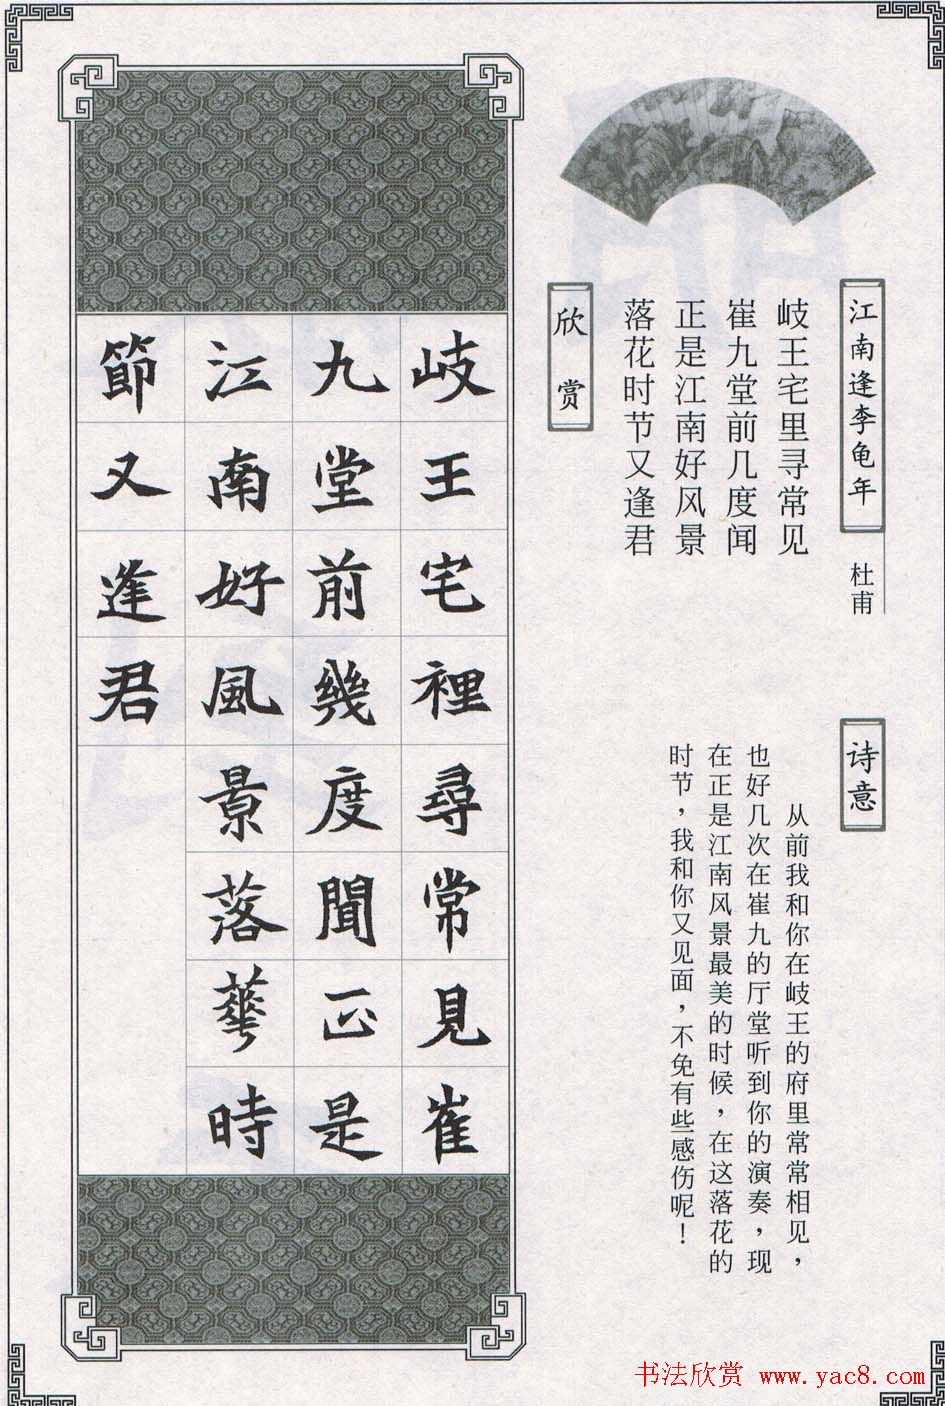 江南逢李龟年
杜甫
岐王宅里寻常见
崔九堂前几度闻
正是江南好风景
落花时节又逢君
欣赏
诗意
从前我和你在岐王的府里常常相见，
也好几次在崔九的厅堂听到你的演奏，现
在正是江南风景最美的时候，在这落花的
时节，我和你又见面，不免有些感伤呢！
岐王宅裡尋常見崔
九堂前幾度聞正是
江南好風景落華時
節又逢君
书法欣赏 www.yac8.com